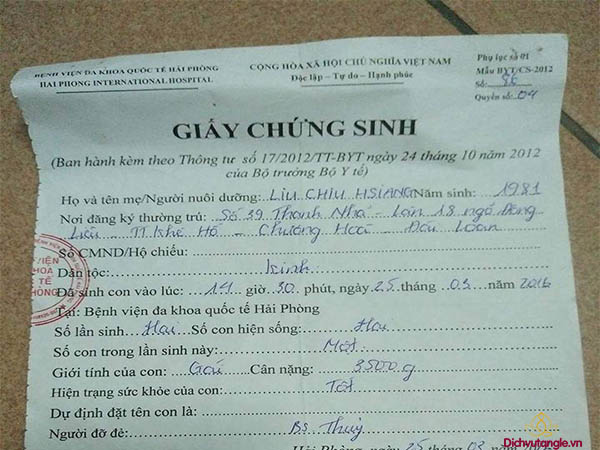 BỆNH VIỆN ĐA KHOA QUỐC TẾ HẢI PHÒNG
HAI PHONG INTERNATIONAL HOSPITAL
CỘNG HÒA XÃ HỘI CHỦ NGHĨA VIỆT NAM
Độc lập - Tự do - Hạnh phúc
Phụ lục số 01
Mẫu BYT/CS-2012
Số: 86
Quyển số: 04
GIẤY CHỨNG SINH
(Ban hành kèm theo Thông tư số 17/2012/TT-BYT ngày 24 tháng 10 năm 2012
của Bộ trưởng Bộ Y tế)
Họ và tên mẹ/Người nuôi dưỡng: LIU CHIU HSIANG Năm sinh: 1981
Nơi đăng ký thường trú: Số 39 Thanh Nhã - Lân 18 ngõ Đông
Liễu - TT Khê Hồ - Chương Hoá - Đài Loan
Số CMND/Hộ chiếu:
Dân tộc: kinh
Đã sinh con vào lúc: 14 giờ 30 phút, ngày 25 tháng 03 năm 2016
Tại: Bệnh viện đa khoa quốc tế Hải Phòng
Số lần sinh Hai Số con hiện sống: Hai
Số con trong lần sinh này: Một
Giới tính của con: Gái Cân nặng: 3500 g
Hiện trạng sức khỏe của con: Tốt
Dự định đặt tên con là:
Người đỡ đẻ: Bs Thuỷ
Hải Phòng, ngày 25 tháng 03 năm 2016
Dichvutangle.vn